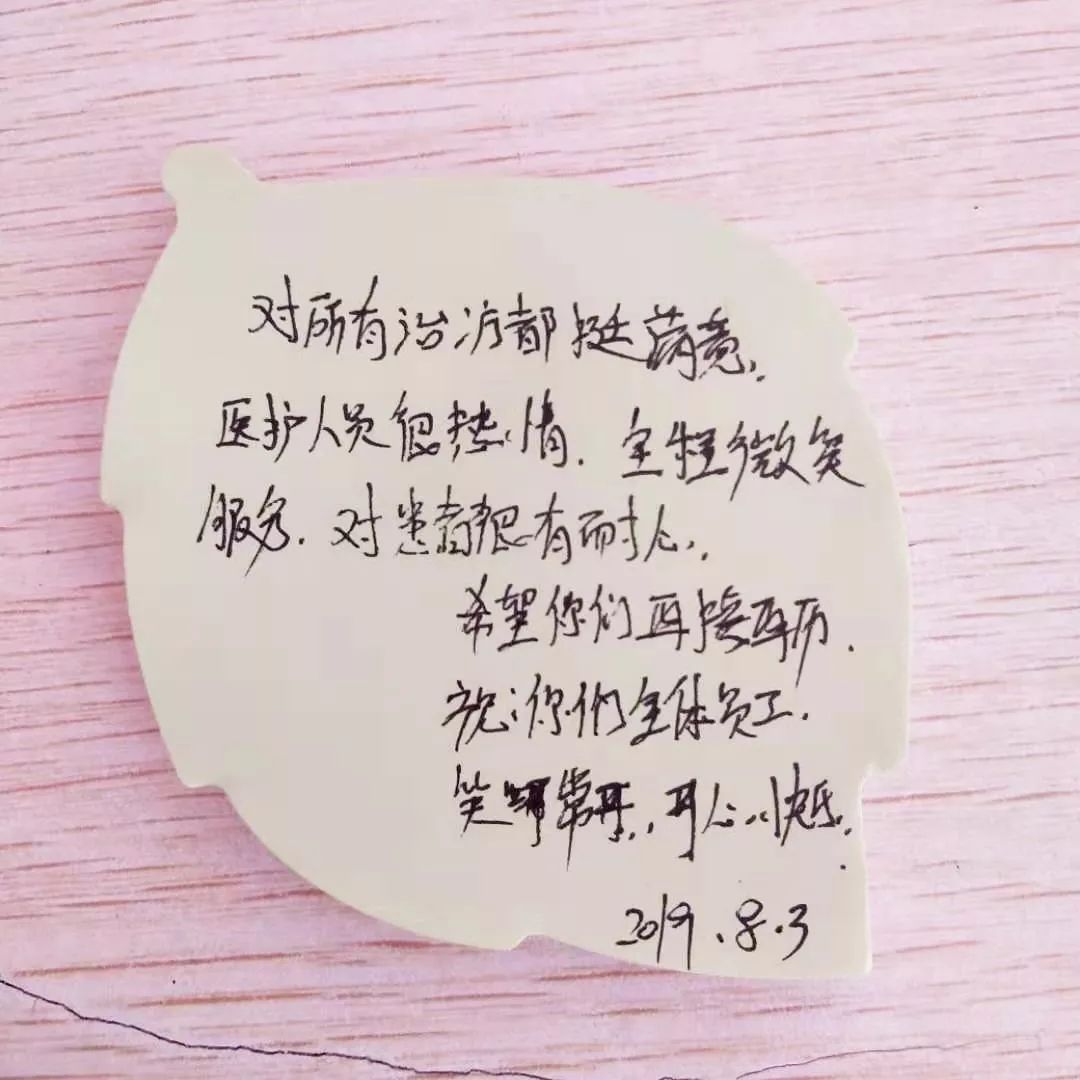 对所有治疗都挺满意,
医护人员很热情.全程微笑
服务.对患者很有耐心,
希望你们再接再历.
祝:你们全体员工.
笑口常开,开心快乐.
2019.8.3